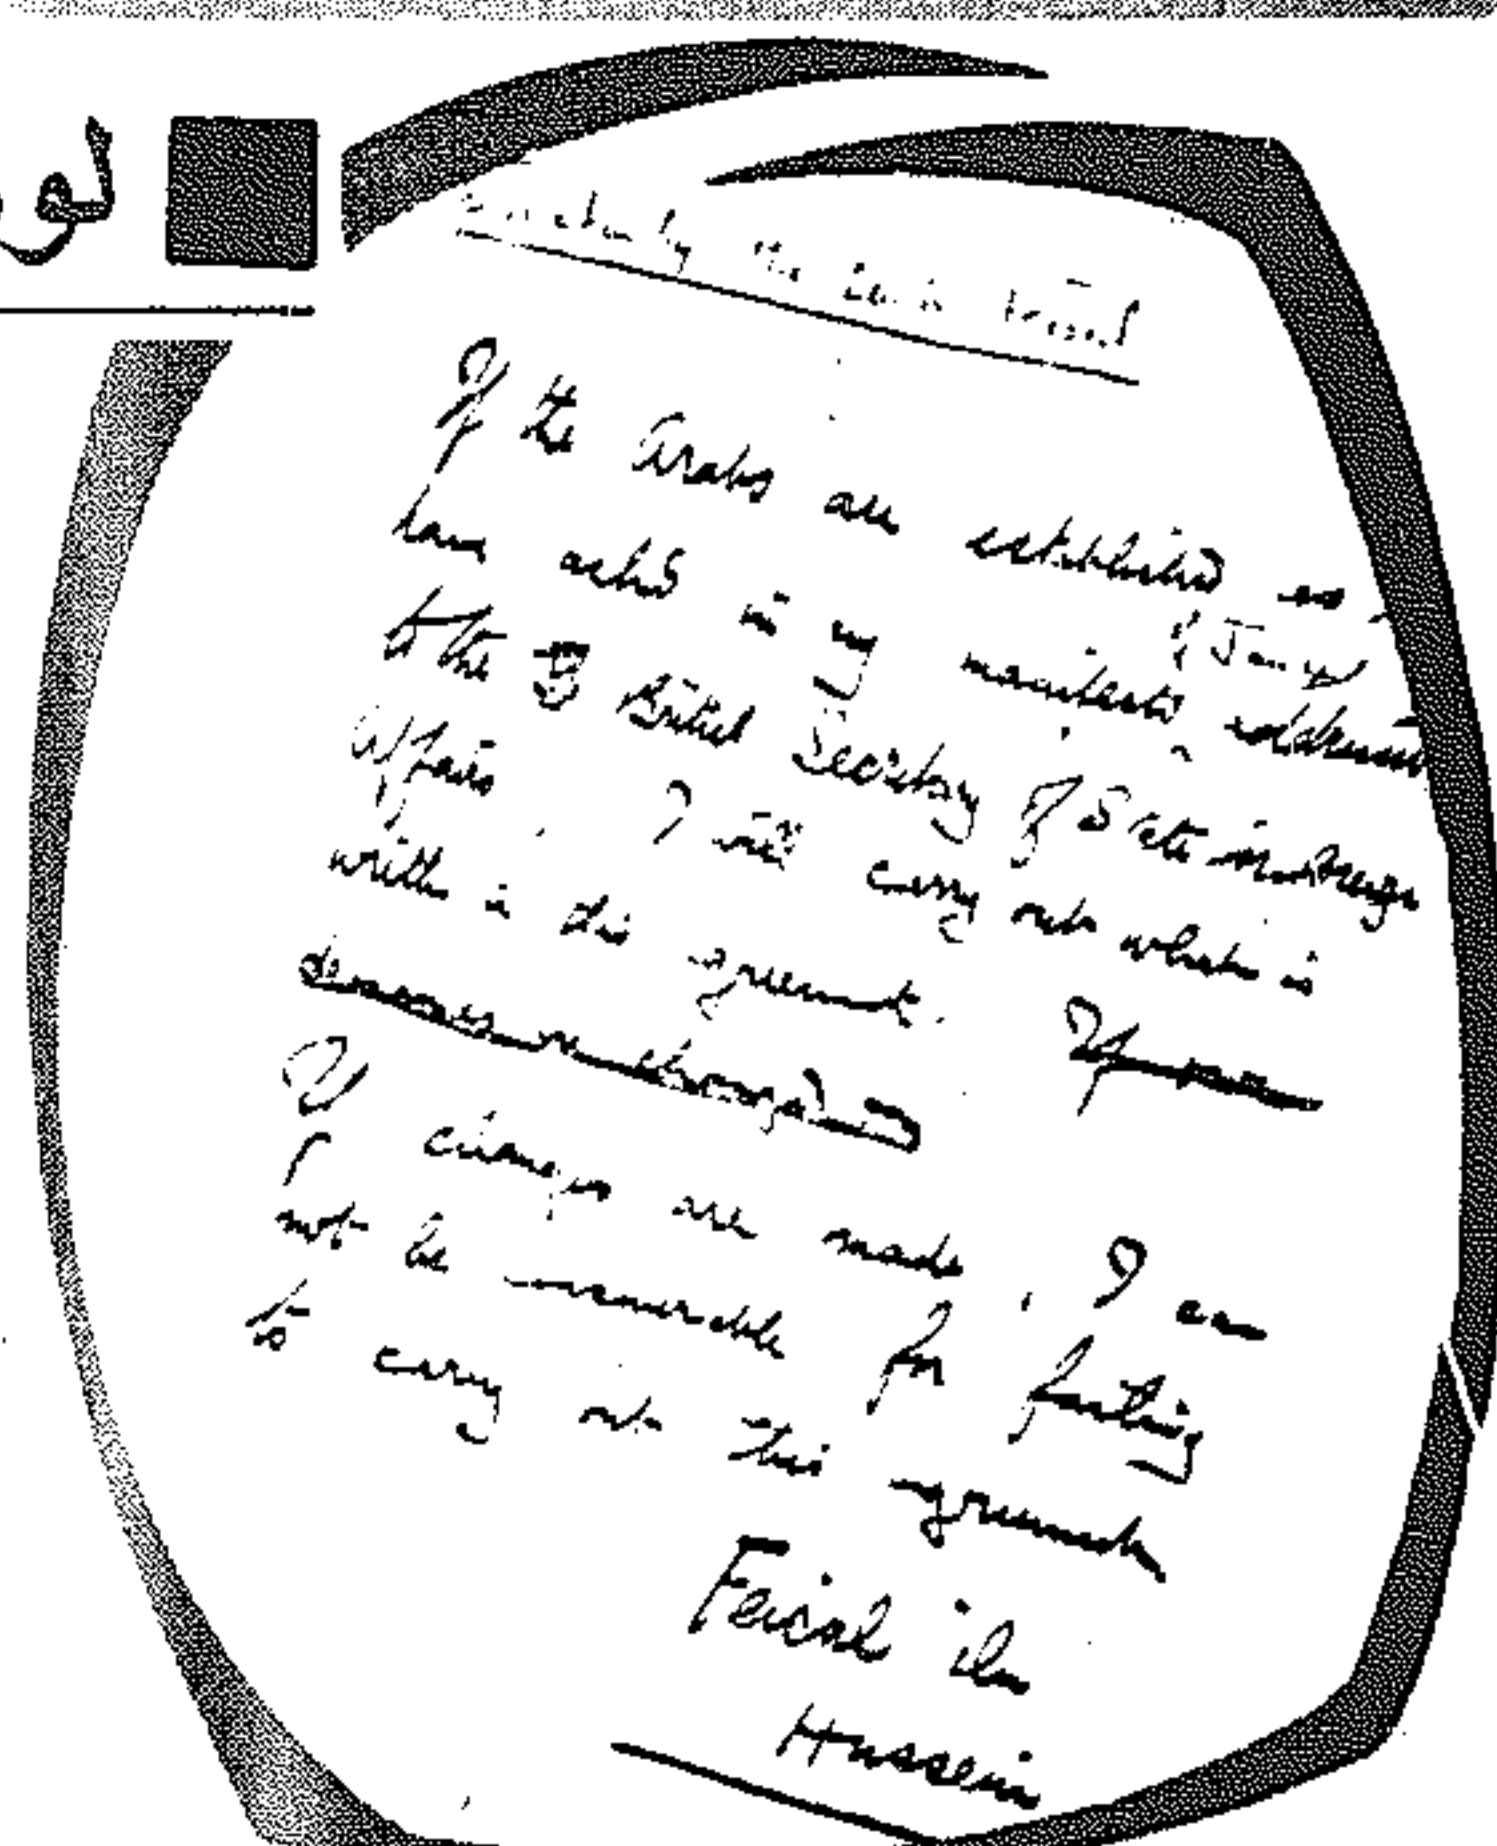 لو
If the Arabs are established as I
have asked in my manifesto of Jany addressed
to the British Secretary of State for Foreign
Affairs I will carry out what is
written in this agreement. If
changes are made, I can
not be answerable for failing
to carry out this agreement
Feisal ibn
Hussein